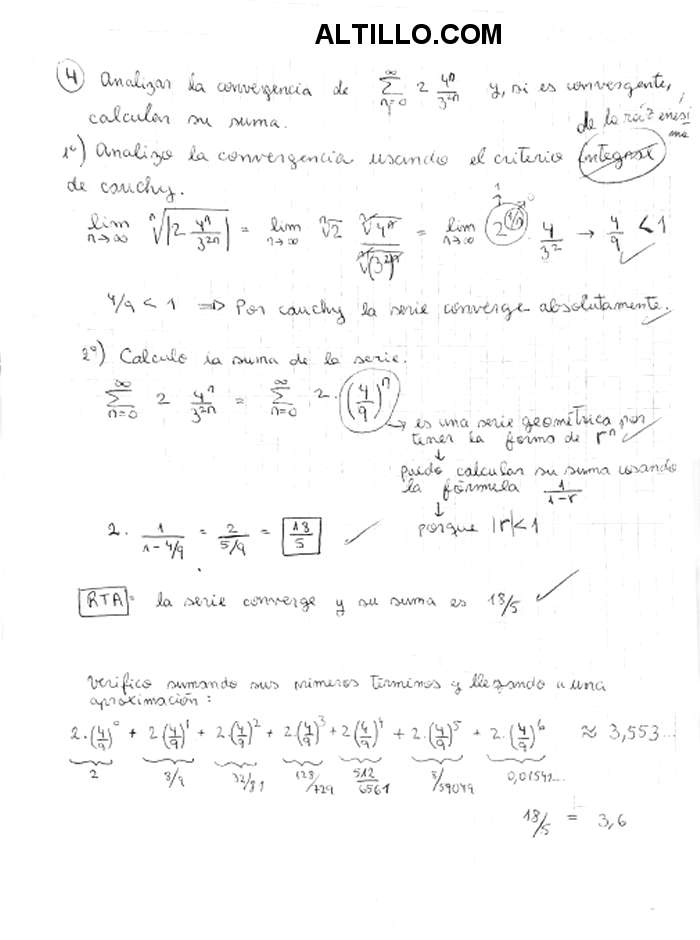 ALTILLO.COM
④ Analizar la convergencia de ∑_{n=0}^{∞} 2 4^n/3^{2n} y, si es convergente,
calcular su suma.
de la raíz enési
ma
1º) Analizo la convergencia usando el criterio integral
de cauchy.
lim_{n→∞} ⁿ√|2 4^n/3^{2n}| = lim_{n→∞} ⁿ√2 ⁿ√4^n/ⁿ√(3^{2n}) = lim_{n→∞} 2^{1/n} · 4/3^2 → 4/9 < 1
4/9 < 1 ⇒ Por cauchy la serie converge absolutamente.
2º) Calculo la suma de la serie.
∑_{n=0}^{∞} 2 4^n/3^{2n} = ∑_{n=0}^{∞} 2·(4/9)^n
→ es una serie geométrica por
tener la forma de r^n
↓
puedo calcular su suma usando
la fórmula 1/(1-r)
↓
porque |r|<1
2. 1/(1-4/9) = 2/(5/9) = 18/5 ✓
RTA = la serie converge y su suma es 18/5 ✓
Verifico sumando sus primeros terminos y llegando a una
aproximación:
2·(4/9)^0 + 2(4/9)^1 + 2·(4/9)^2 + 2·(4/9)^3 + 2(4/9)^4 + 2·(4/9)^5 + 2·(4/9)^6 ≈ 3,553...
2 8/9 32/81 128/729 512/6561 /59049
18/5 = 3,6